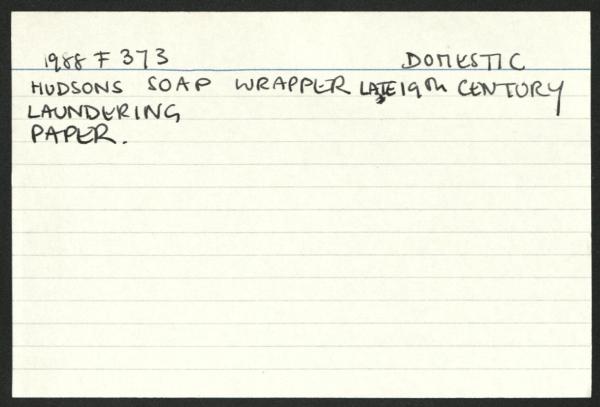 1988 F 373 DOMESTIC
HUDSONS SOAP WRAPPER LATE 19th CENTURY
LAUNDERING
PAPER.